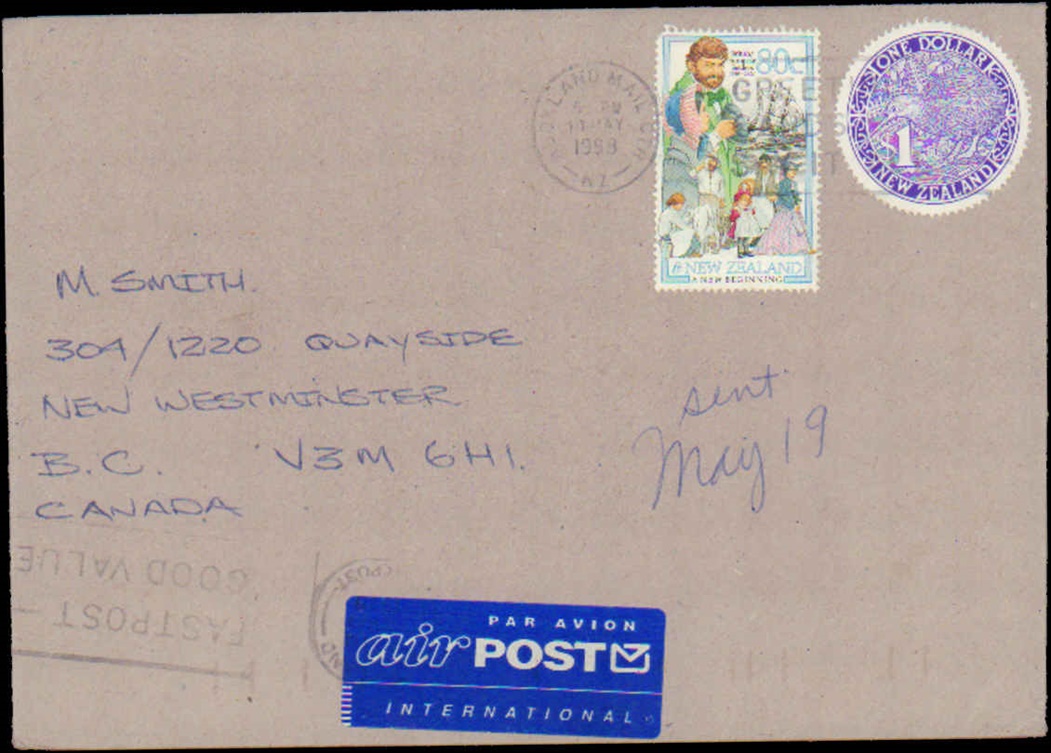 80c
NEW ZEALAND
A NEW BEGINNING
ONE DOLLAR
1
NEW ZEALAND
AUCKLAND MAIL
PM
MAY
1998
NZ
M. SMITH.
304/1220 QUAYSIDE
NEW WESTMINSTER
B.C. V3M 6H1.
CANADA
sent
May 19
FASTPOST –
GOOD VALUE
PAR AVION
air POST
INTERNATIONAL